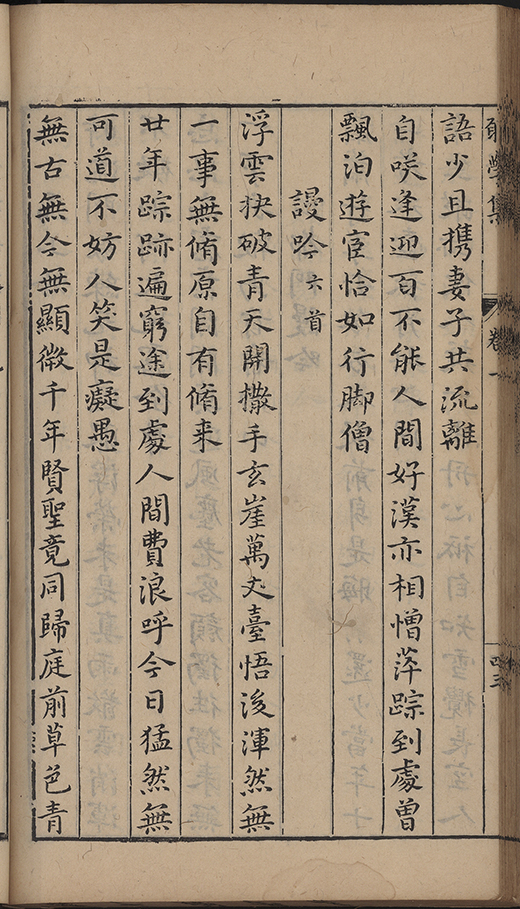 學集
卷一
四三
語少且携妻子共流離
自咲逢迎百不能人間好漢亦相憎萍踪到處曾
飄泊遊宦恰如行脚僧
謾吟六首
浮雲抉破青天開撒手玄崖萬丈臺悟後渾然無
一事無脩原自有脩来
廿年踪跡遍窮途到處人間費浪呼今日猛然無
可道不妨人笑是癡愚
無古無今無顯微千年賢聖竟同歸庭前草色青